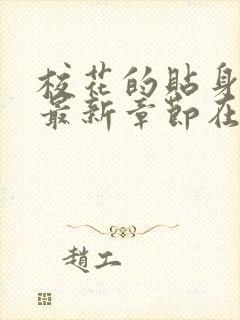 校花的貼身
最新章節在
趙工